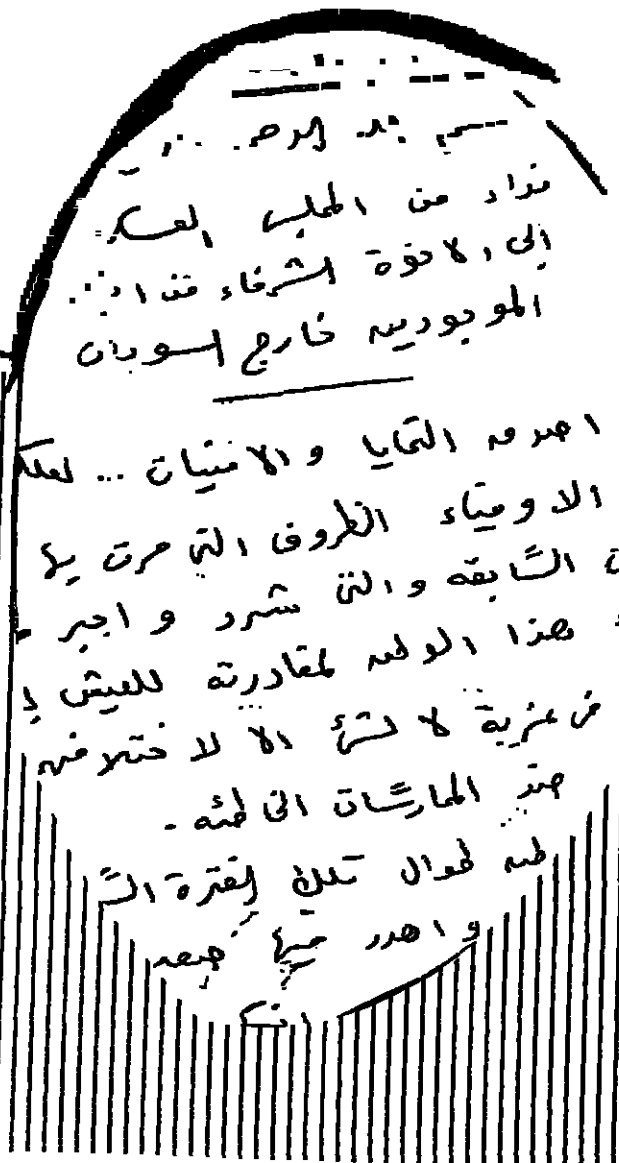 بسم الله الرحمن
نداء من المجلس العسكر
إلى الاخوة الشرفاء
الموجودين خارج السودان
اصدق التحايا والامنيات .. لعلكم
الاوفياء الظروف التي مرت بها
السابقه والتي شرد واجبر
هذا الوطن لمغادرته للعيش
في غربة لا لشئ الا لاختلافهم
ضد الممارسات الخاطئه .
طوال تلك الفترة
واهدر فيها